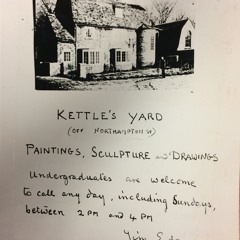 KETTLE'S YARD
(OFF NORTHAMPTON ST)
PAINTINGS, SCULPTURE AND DRAWINGS
Undergraduates are welcome
to call any day, including Sundays,
between 2 PM and 4 PM
Jim Ede